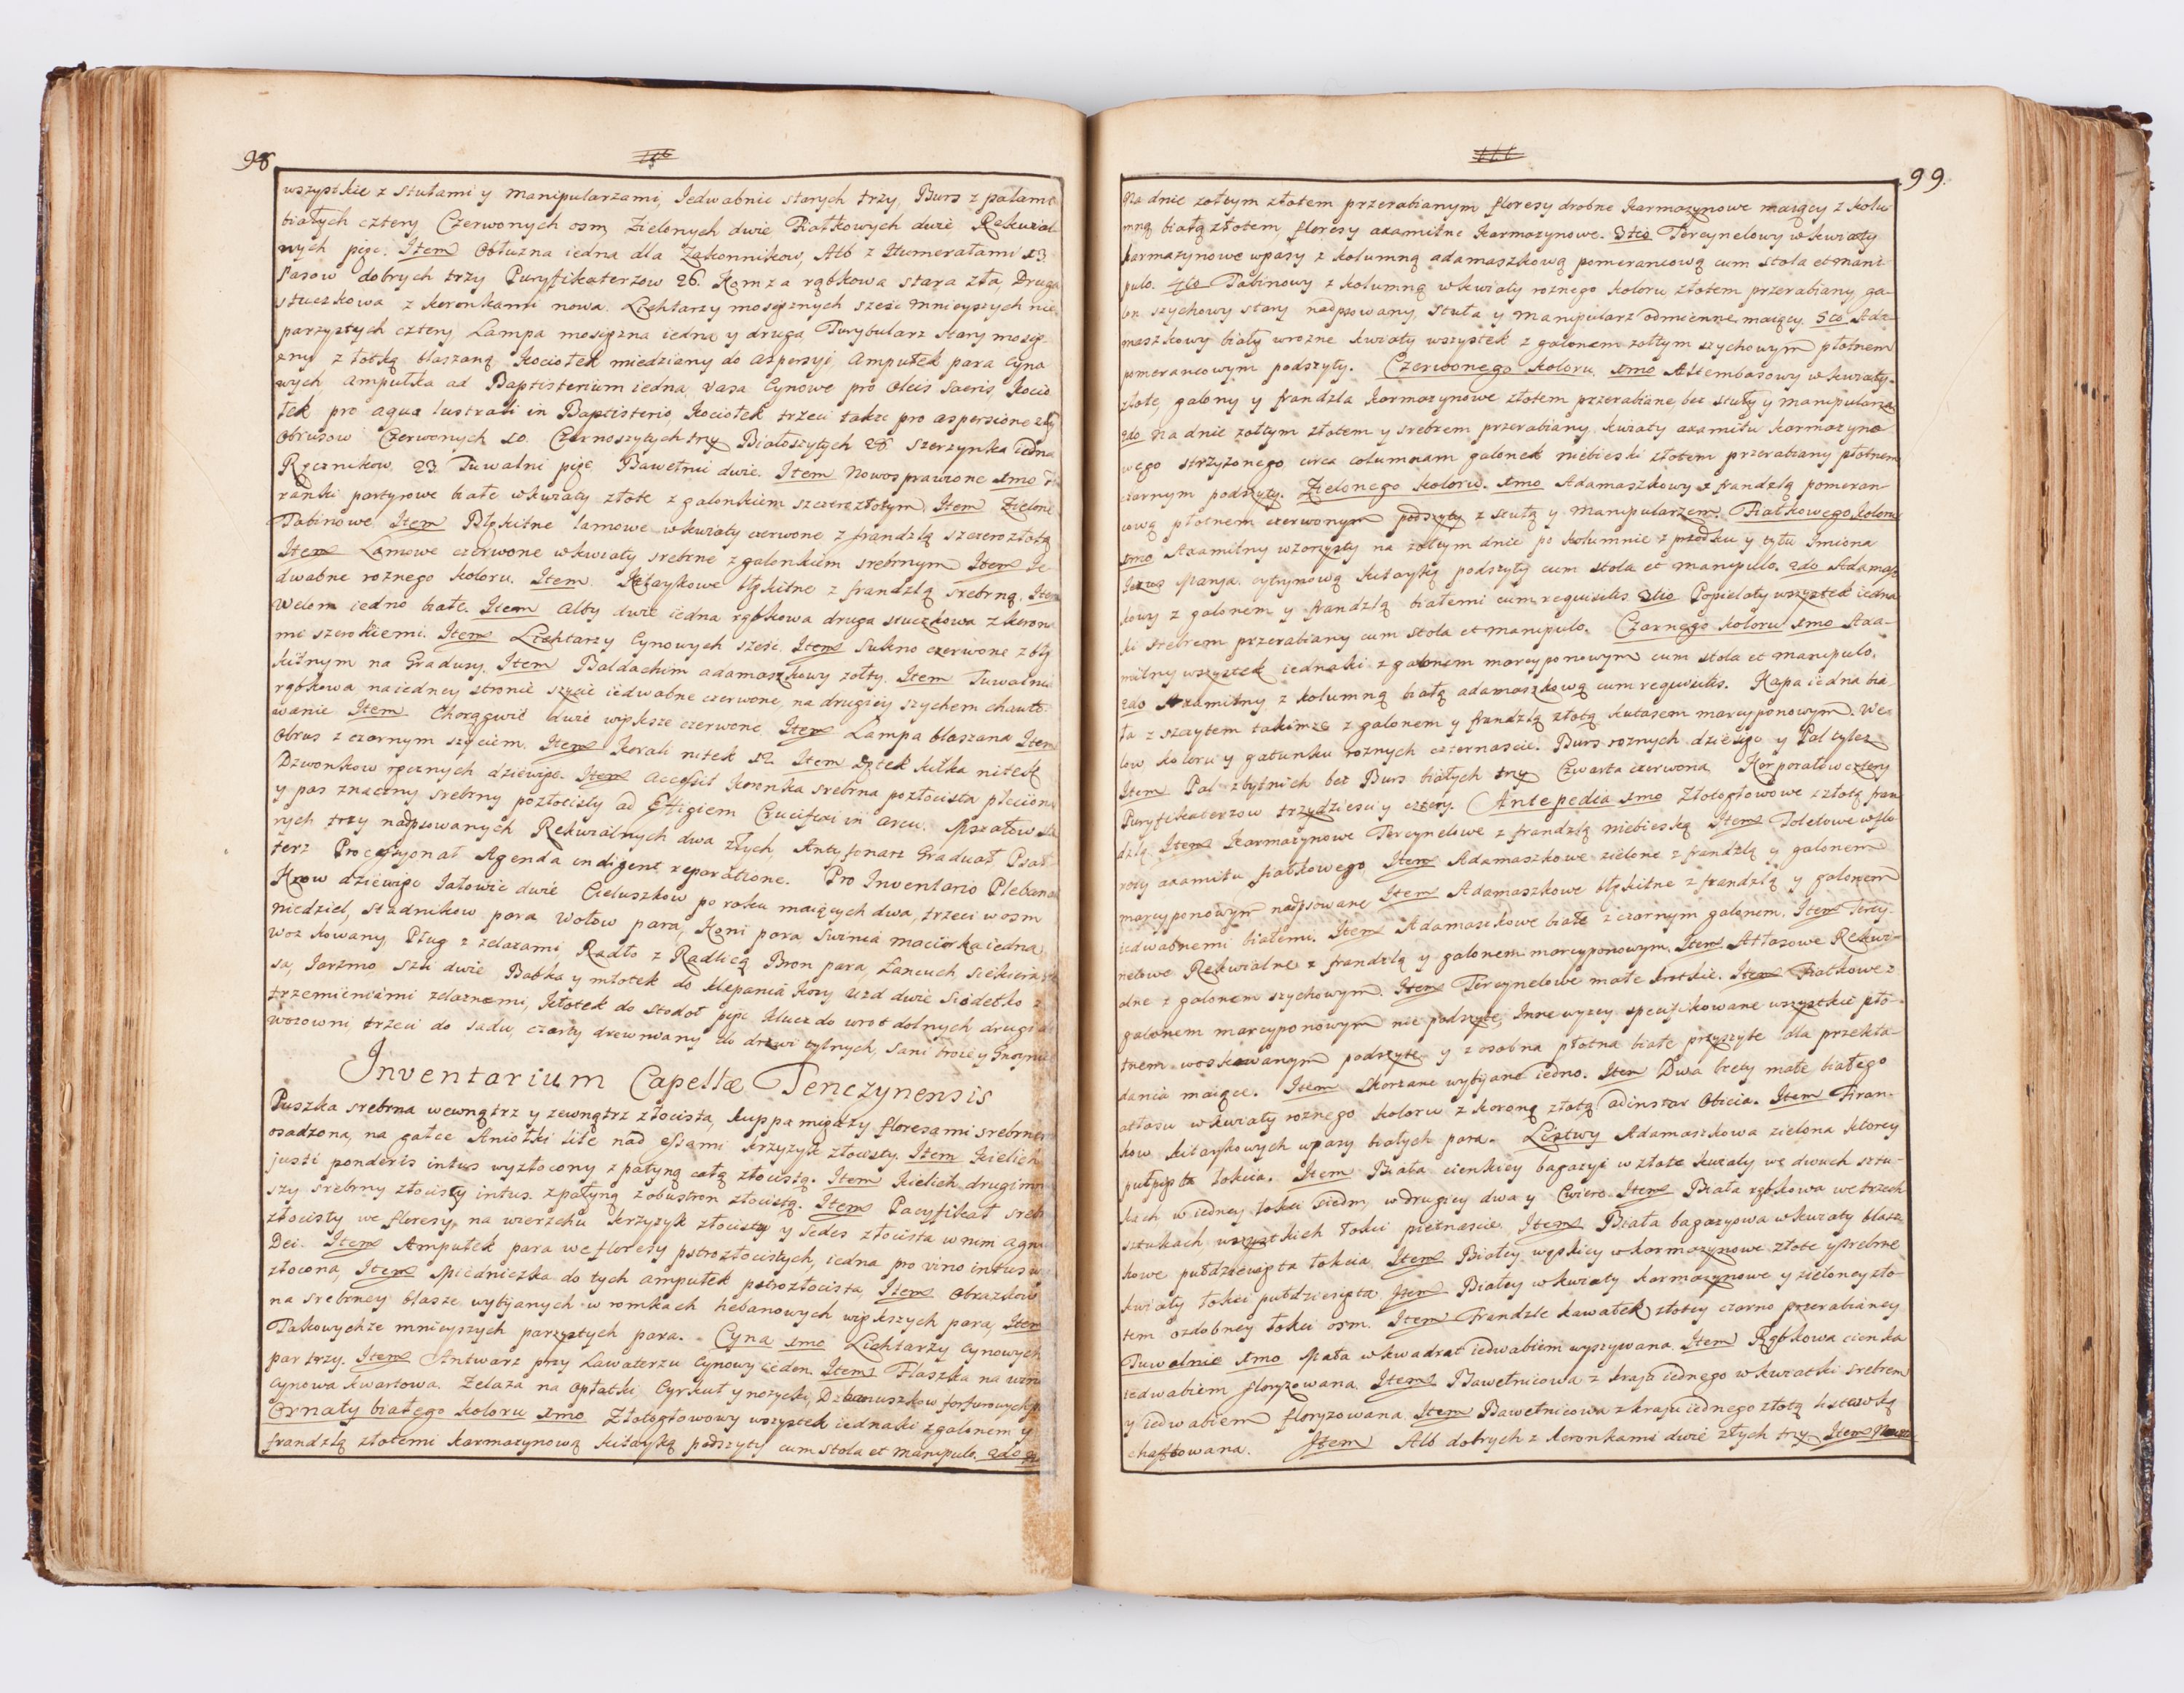 98
wszystkie z stułami y manipularzami, Iedwabnic starych trzy, Burs z palami
białych cztery Czerwonych osm, Zielonych dwie Fiałkowych dwie Rekwial
nych pięc. Item Obłuzna iedna dla Zakonnikow, Alb z Humerałami 13.
Pasow dobrych trzy Puryfikaterzow 26. Komza rąbkowa stara zła, Druga
stuczkowa z koronkami nowa. Lichtarzy mosięznych szesc mnieyszych nie
parzystych cztery Lampa mosięzna iedna y druga Turybularz stary mosię
zny z łotką blaszaną, Kociołek miedziany do aspersyi, Ampułek para Cyno
wych, ampułka ad Baptisterium iedna, vasa Cynowe pro Oleis Sacris, Kocio
łek pro aqua lustrali in Baptisterio, Kociołek trzeci takze pro aspersione zły
Obrusow Czerwonych 10. Czarnoszytych try Białoszytych 28 szerzynka iedna
Ręcznikow 23 Tuwalni pięc, Bawełnic dwie. Item Nowosprawione 1mo Fi
ranki partyrowe białe w kwiaty złote z galonkiem szczerozłotym, Item Zielone
Tabinowe, Item Błękitne lamowe w kwiaty czerwone z frandzlą szczerozłotą
Item Lamowe czerwone w kwiaty srebrne z galonkiem srebrnym Item Ie-
dwabne roznego koloru. Item Kitaykowe błękitne z frandzlą srebrną. Item
Welom iedno białe. Item Alby dwie iedna rąbkowa druga stuczkowa z koron
mi szerokiemi. Item Lichtarzy Cynowych szesc. Item Sukno czerwone z błę
kitnym na Gradusy. Item Baldachim adamaszkowy zołty. Item Tuwalnia
rąbkowa na iedney stronie szycie iedwabne czerwone, na drugiey szychem chawto-
wanie Item Chorągwie dwie większe czerwone Item Lampa blaszana Item
Obrus z czarnym szyciem. Item Korali nitek 12 Item kilka nitek
Dzwonkow ręcznych dziewięc. Item Accessit Koronka srebrna pozłocista
y pas znaczny srebrny pozłocisty ad Effigiem Crucifixi in Arcu. Mszałow
rych trzy nadpsowanych Rekwialnych dwa złych, Antyfonarz Graduał Psał
terz Processyonał Agenda indigent reparatione. Pro Inventario Plebanali
Krow dziewięc Iałowic dwie Cieluszkow po roku maiących dwa, trzeci w osm
niedziel, stadnikow para Wołow para, Koni para, Swinia maciorka iedna
woz kowany Pług z zelazami, Radło z Radlicą Bron para, Łancuch, siekiera
sa, Iarzmo, szli dwie, Babka y młotek do klepania Kosy Uzd dwie Siodełko z
trzemieniami zelaznemi, Kłotek do stodoł pięc Klucz do wrot dolnych drugi do
wozowni, trzeci do sadu, czarty drewniany do drzwi tylnych, sani troie y Gnoynic
Inventarium Capellæ Tenczynensis
Puszka srebrna wewnątrz y zewnątrz złocista, kuppa między floresami srebrnemi
osadzona, na gałce Aniołki lite nad essami krzyzyk złocisty. Item Kielich
justi ponderis intus wyzłocony z patyną całą złocistą. Item Kielich drugi mn
szy srebrny złocisty intus z patyną z obustron złocistą. Item Pacyfikał sreb
złocisty we floresy, na wierzchu krzyzyk złocisty y Sedes złocista w nim Agnus
Dei. Item Ampułek para we floresy pstrozłocistych, iedna pro vino intus
złocona, Item Miedniczka do tych ampułek pstrozłocista, Item Obrazkow
na srebrney blasze wybijanych w romkach hebanowych większych para, Item
Takowychze mnieyszych parzystych para. Cyna 1mo Lichtarzy Cynowych
par trzy. Item Antwarz przy Lawaterzu Cynowy ieden. Item Flaszka na wino
Cynowa kwartowa. Zelaza na Opłatki, Cyrkuł y nozyczki, Dzbanuszkow forfurowych
Ornaty białego Koloru 1mo Złotogłowowy wszystek iednaki z galonem y
frandzlą złotemi karmazynową kitayką podszyty cum stola et manipulo. 2do
99
Na dnie zołtym złotem przerabianym floresy drobne karmazynowe maiący z kolu
mną białą złotem floresy axamitne karmazynowe. 3tio Tercynelowy w kwiaty
karmazynowe w pasy z kolumną adamaszkową pomarancową cum stola et mani
pulo. 4to Tabinowy z kolumną w kwiaty roznego koloru złotem przerabiany ga-
lon szychowy stary nadpsowany, stuła y manipularz odmienne maiący. 5to Ada
maszkowy biały w rozne kwiaty wszystek z galonem zołtym szychowym płotnem
pomerancowym podszyty. Czerwonego Koloru 1mo Altembasowy w kwiaty
złote, galony y frandzla karmazynowe złotem przerabiane, bez stuły y manipularza
2do Na dnie zołtym złotem y srebrem przerabiany kwiaty axamitu karmazyno
wego strzyzonego circa columnam galonek niebieski złotem przerabiany płotnem
czarnym podszyty. Zielonego koloru. 1mo Adamaszkowy z frandzlą pomeran
cową płotnem czerwonym podszyty z stułą y manipularzem. Fiałkowego koloru
1mo Axamitny wzorzysty na zołtym dnie po kolumnie z przodku y tyłu Imiona
Iezus Marya. cytrynową kitayką podszyty cum stola et manipulo. 2do Adamasz
kowy z galonem y frandzlą białemi cum requisitis 3tio Popielaty wszystek iedna
ki srebrem przerabiany cum stola et manipulo. Czarnego koloru 1mo Axa-
mitny wszystek iednaki z galonem marcyponowym cum stola et manipulo.
2do Axamitny z kolumną białą adamaszkową cum requisitis. Kapa iedna bia
ła z szczytem takimze z galonem y frandzlą złotą kutasem marcyponowym. We-
low koloru y gatunku roznych czternascie. Burs roznych dziesięc y Pal tylez
Item Pal zbytnich bez Burs białych try Czwarta czerwona Korporałow cztery
Puryfikaterzow trzydziesci y cztery. Antepedia 1mo Złotogłowowe z złotą fran
dzlą Item Karmazynowe Tercynelowe z frandzlą niebieską Item Toletowe w flo
rosy axamitu fiałkowego Item Adamaszkowe zielone z frandzlą y galonem
marcyponowym nadpsowane Item Adamaszkowe błękitne z frandzlą y galonem
iedwabnemi białemi. Item Adamaszkowe białe z czarnym galonem. Item Tercy-
nelowe Rekwialne z frandzlą y galonem marcyponowym. Item Atłasowe Rekwi-
alne z galonem szychowym. Item Tercynelowe małe krotkie. Item Fiałkowe z
galonem marcyponowym nie podszyte, Inne wyzey specifikowane wszystkie płó-
tnem woskowanym podszyte y z osobna płotna białe przyszyte dla przekła-
dania maiące. Item Skorzane wybijane iedno. Item Dwa brety małe białego
atłasu w kwiaty roznego koloru z koroną złotą ad instar Obicia. Item Firan-
kow kitaykowych w pasy białych para. Listwy Adamaszkowa zielona ktorey
pułpięta łokcia. Item Biała cienkiey bagazyi w złote kwiaty we dwuch sztu-
kach w iedney łokci siedm, w drugiey dwa y Cwierc Item Biała rąbkowa we trzech
sztukach wszystkich łokci pietnascie. Item Biała bagazyowa w kwiaty blasz
kowe pułdziewięta łokcia Item Białey wąskiey w karmazynowe złote y srebrne
kwiaty łokci pułdziesięta Item Białey w kwiaty karmazynowe y zieloney zło-
tem ozdobney łokci osm. Item Frendzle kawałek złotey czarno przerabianey
Tuwalnie 1mo Mała w kwadrat iedwabiem wyszywana. Item Rąbkowa cienka
iedwabiem floryzowana. Item Bawełnicowa z kraju iednego w kwiatki srebrem
y iedwabiem floryzowana Item Bawełnicowa z kraju iednego złotą listewką
chaftowana. Item Alb dobrych z koronkami dwie złych try. Item